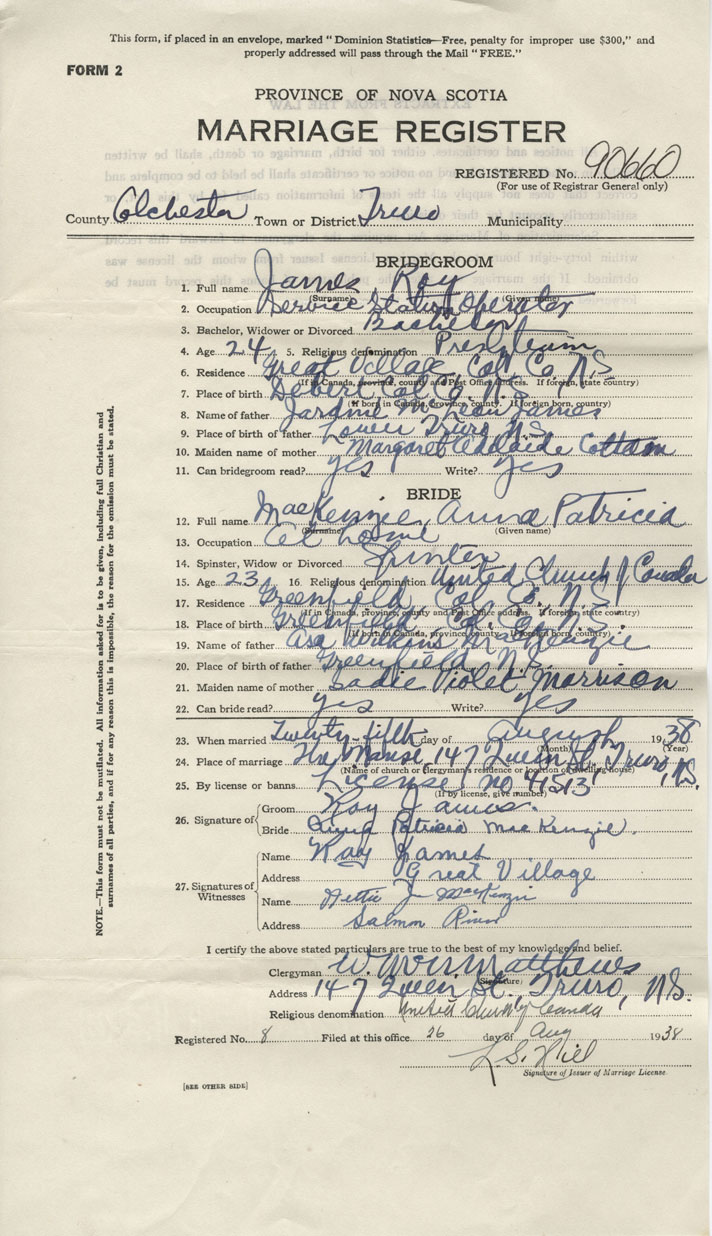 This form, if placed in an envelope, marked "Dominion Statistics—Free, penalty for improper use $300," and
properly addressed will pass through the Mail "FREE."
FORM 2
PROVINCE OF NOVA SCOTIA
MARRIAGE REGISTER
REGISTERED No. 90660
(For use of Registrar General only)
County Colchester Town or District Truro Municipality
BRIDEGROOM
1. Full name James, Roy
(Surname) (Given name)
2. Occupation Service Station Operator
3. Bachelor, Widower or Divorced Bachelor
4. Age 24 5. Religious denomination
6. Residence Great Village Col. Co. N.S
(If in Canada, province, county and Post Office address. If foreign, state country)
7. Place of birth Debert Col. Co. N.S.
(If born in Canada, province, county. If foreign born, country)
8. Name of father James
9. Place of father Lower Truro N.S.
10. Maiden name of mother Margaret Adelaide Cottam
11. Can bridegroom read? yes Write? yes
BRIDE
12. Full name MacKenzie, Anna Patricia
(Surname) (Given name)
13. Occupation At home
14. Spinster, Widow or Divorced Spinster
15. Age 23 16. Religious denomination United Church of Canada
17. Residence Greenfield, Col. Co. N.S
(If in Canada, province, county and Post Office address. If foreign, state country)
18. Place of birth Greenfield, Col. Co. N.S
(If born in Canada, province, county. If foreign born, country)
19. Name of father Asa Wilkins MacKenzie
20. Place of birth of father Greenfield, N.S.
21. Maiden name of mother Sadie Violet Morrison
22. Can bride read? yes Write? yes
23. When married Twenty-fifth day of August 1938
(Month) (Year)
24. Place of marriage The Manse, 147 Queen St. Truro, N.S.
(Name of church or clergyman's residence or location of dwelling-house)
25. By license or banns License no 4513
(If by license, give number)
26. Signature of
Groom Roy James.
Bride Anna Patricia MacKenzie.
27. Signatures of Witnesses
Name Ray James
Address Great Village
Name J MacKenzie
Address Salmon River
I certify the above stated particulars are true to the best of my knowledge and belief.
Clergyman Matthews
(Signature)
Address 147 Queen St. Truro, N.S.
Religious denomination United Church of Canada
Registered No. 8 Filed at this office 26 day of Aug 1938
L. S. Hill
Signature of Issuer of Marriage License.
[SEE OTHER SIDE]
NOTE.—This form must not be mutilated. All information asked for is to be given, including full Christian and
surnames of all parties, and if for any reason this is impossible, the reason for the omission must be stated.